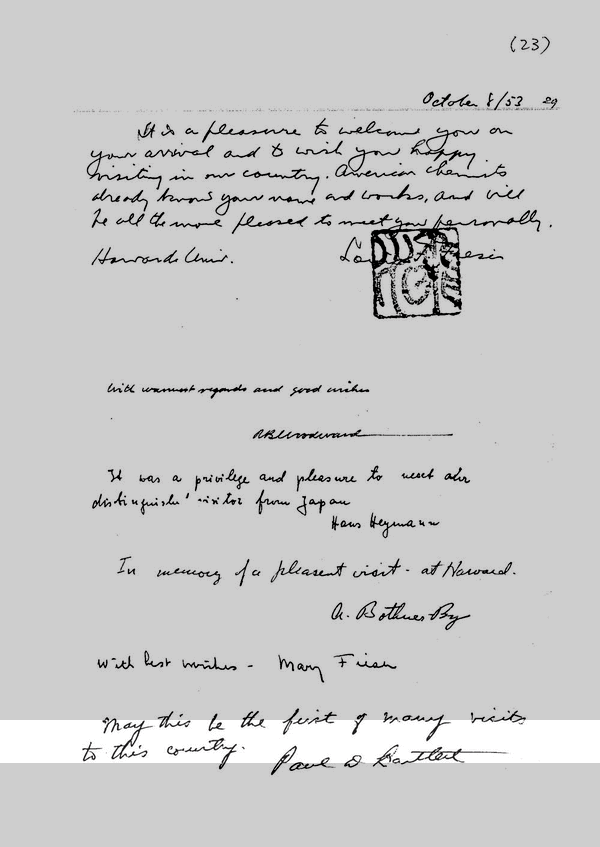 (23)
October 8/53
It is a pleasure to welcome you on
your arrival and to wish you happy
visiting in our country. American chemists
already know your name and works, and will
be all the more pleased to meet you personally.
Harvard Univ.
With warmest regards and good wishes
RBWoodward
It was a privilege and pleasure to meet our
distinguish' visitor from Japan
Hans Heymann
In memory of a pleasent visit - at Harvard.
A. Bothner-By
With best wishes - Mary Fieser
May this be the first of many visits
to this country.
Paul D Bartlett